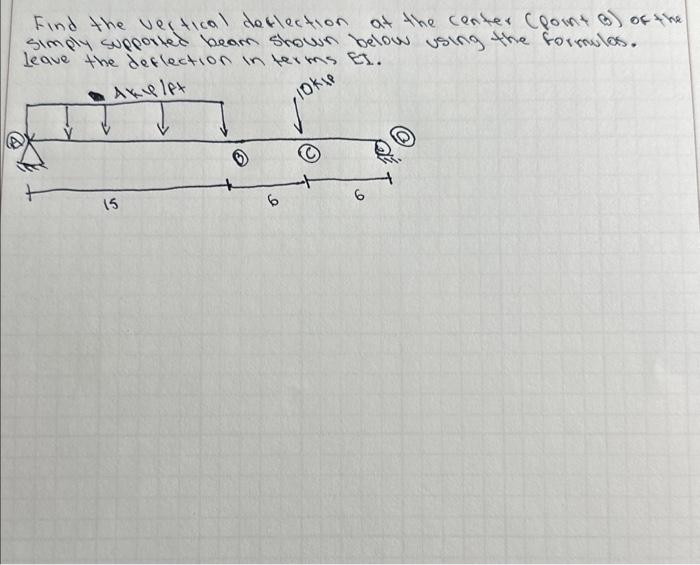 Find the vertical deflection at the center (point B) of the
simply supported beam shown below using the formulas.
leave the deflection in terms EI.
4 kip/ft
10 kip
A
B
C
D
15
6
6